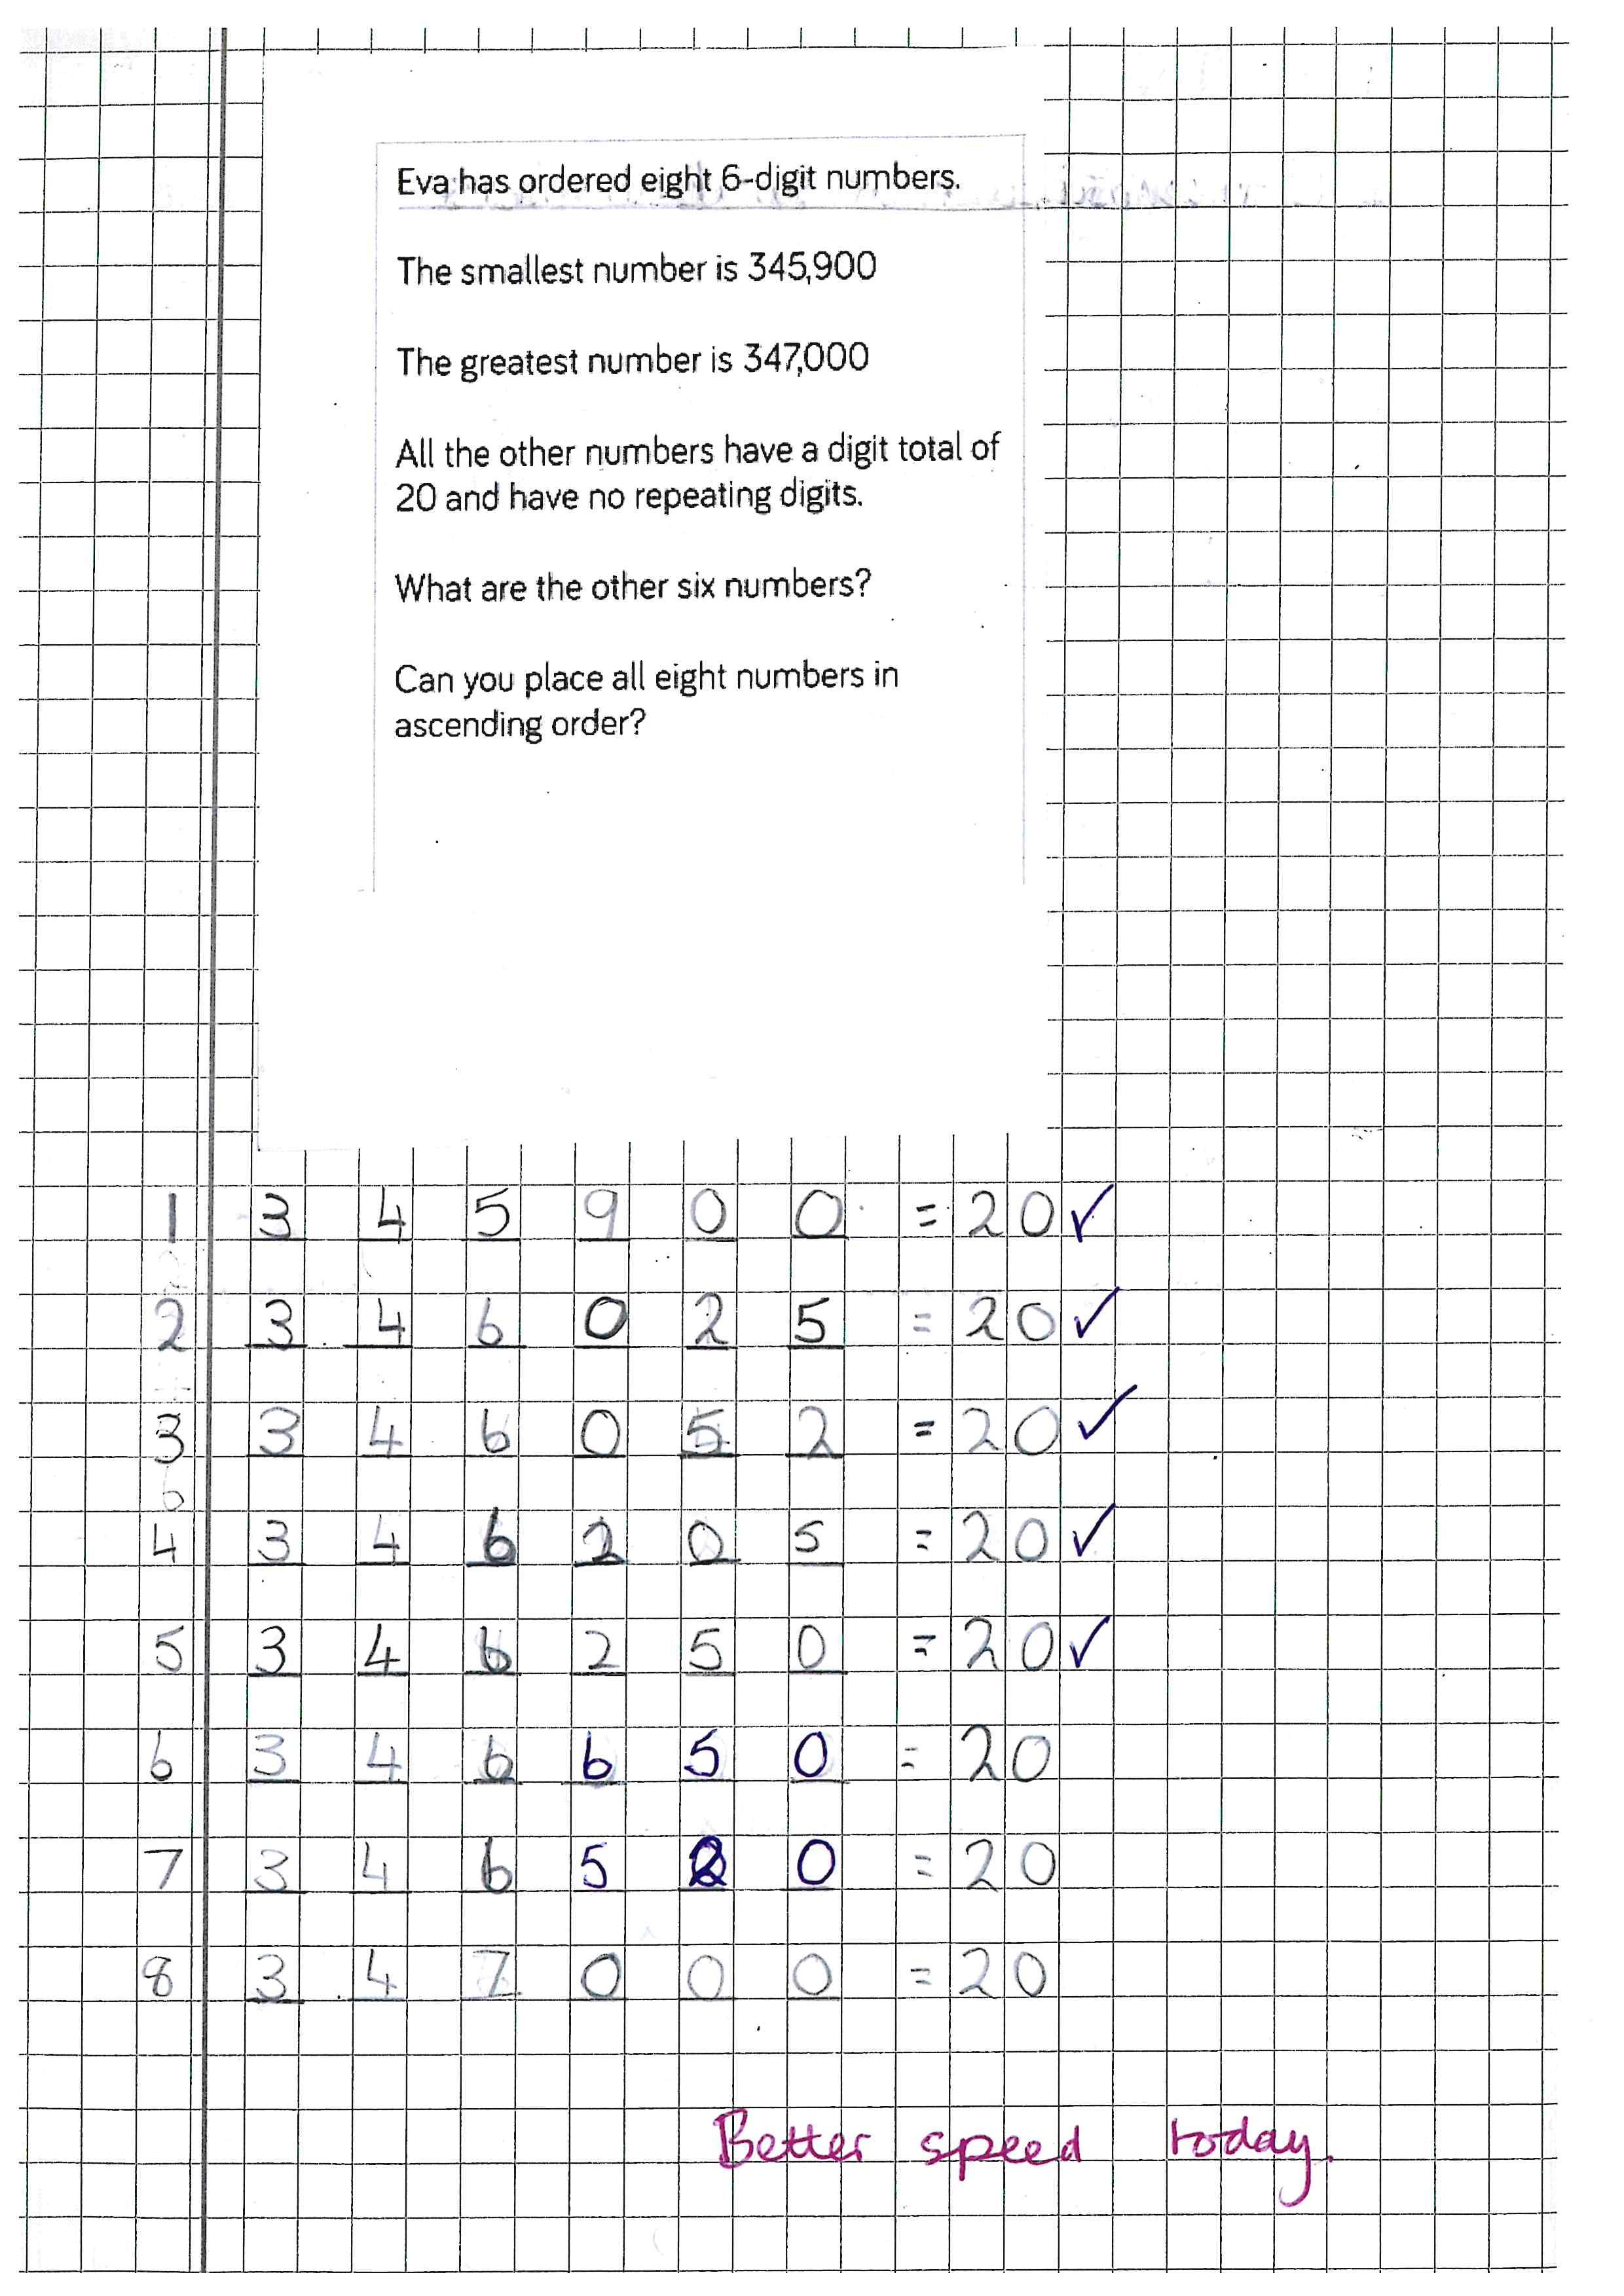 Eva has ordered eight 6-digit numbers.
The smallest number is 345,900
The greatest number is 347,000
All the other numbers have a digit total of
20 and have no repeating digits.
What are the other six numbers?
Can you place all eight numbers in
ascending order?
1 3 4 5 9 0 0 = 20 ✓
2 3 4 6 0 2 5 = 20 ✓
3 3 4 6 0 5 2 = 20 ✓
4 3 4 6 2 0 5 = 20 ✓
5 3 4 6 2 5 0 = 20 ✓
6 3 4 6 6 5 0 = 20
7 3 4 6 5 2 0 = 20
8 3 4 7 0 0 0 = 20
Better speed today.